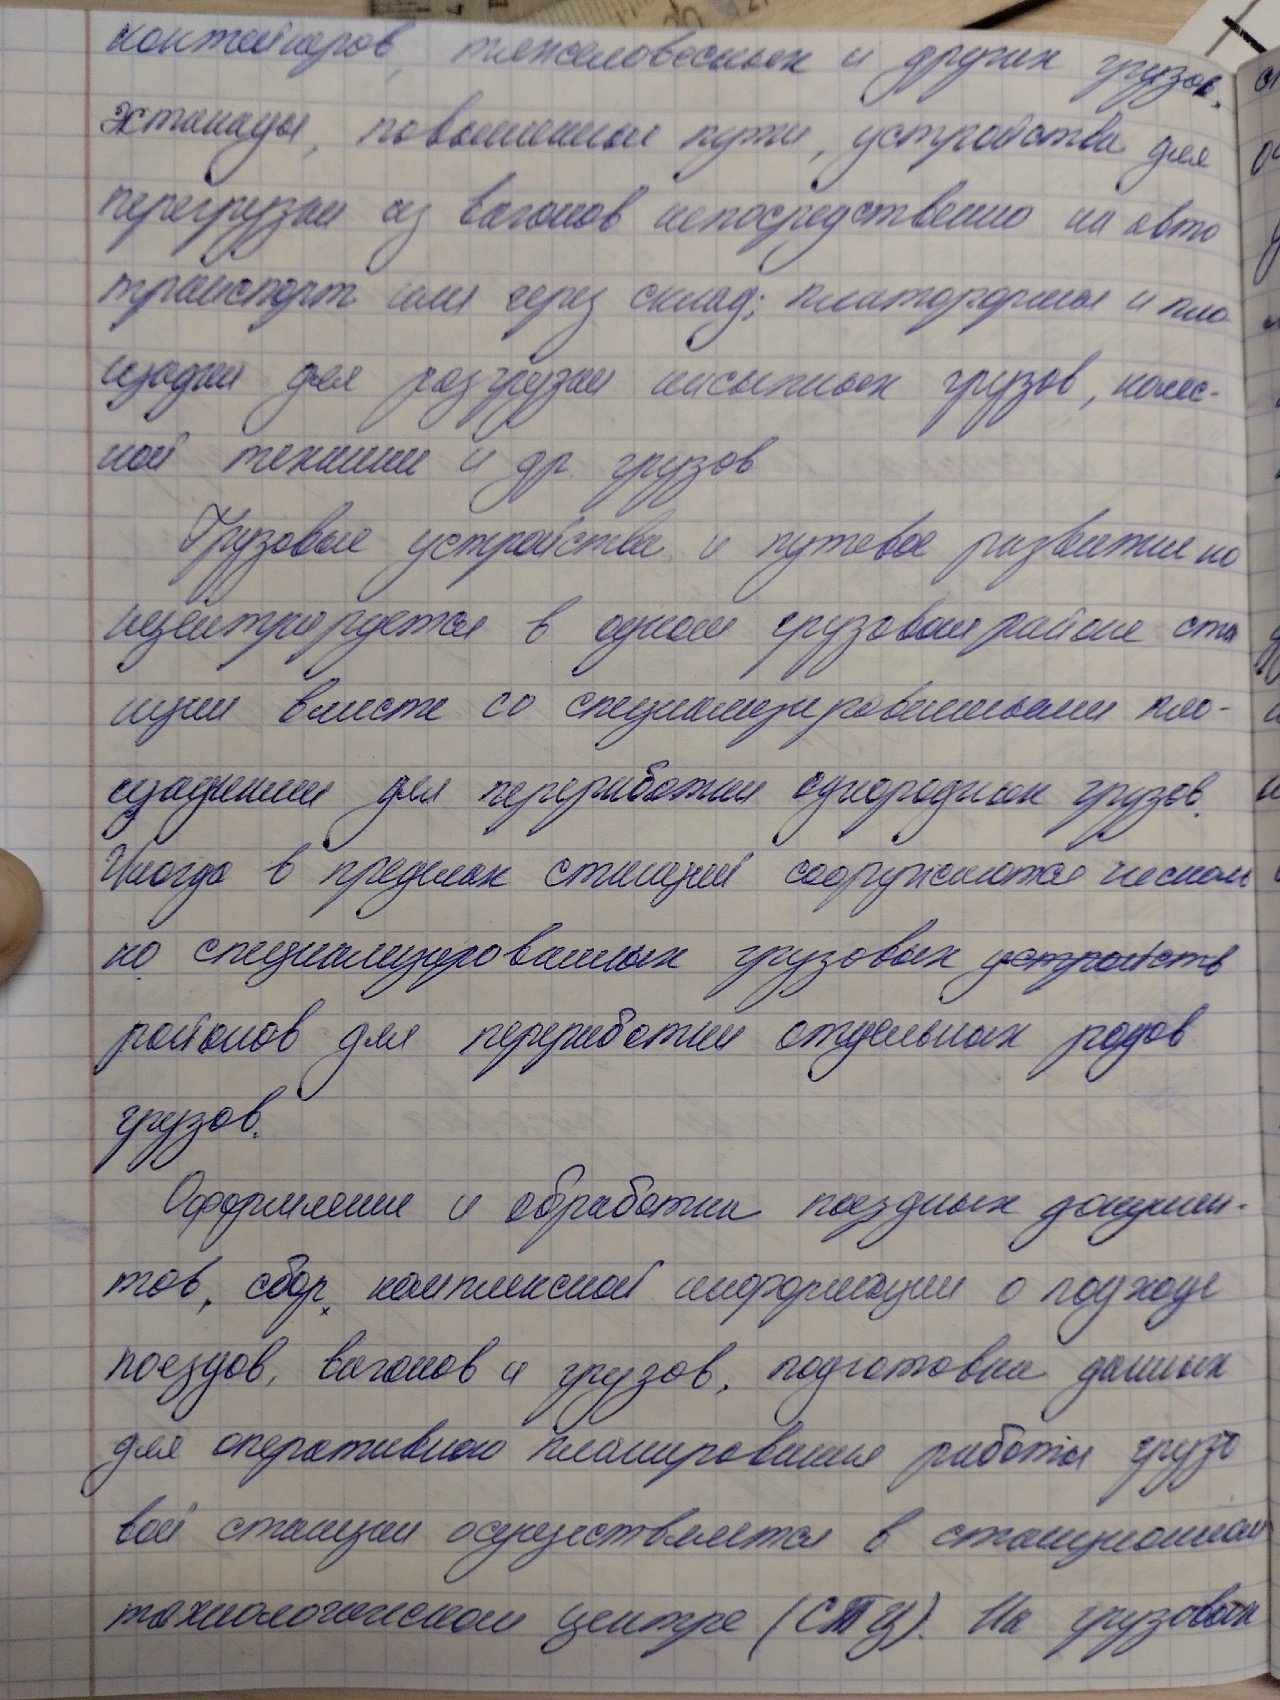 контейнеров, тяжеловесных и других грузов.
Эстакады, повышенные пути, устройства для
перегрузки из вагонов непосредственно на авто
транспорт или через склад; платформы и пло
щадки для разгрузки насыпных грузов, колес-
ной техники и др. грузов
Грузовые устройства и путевое развитие ко
нцентрируется в одном грузовом районе ста
нции вместе со специализированными пло-
щадками для переработки однородных грузов.
Иногда в пределах станций сооружаются несколь
ко специализированных грузовых устройств
районов для переработки отдельных родов
грузов.
Оформление и обработка поездных докумен-
тов, сбор комплексной информации о подходе
поездов, вагонов и грузов, подготовка данных
для оперативного планирования работы грузо
вой станции осуществляется в станционном
технологическом центре (СТЦ). На грузовой